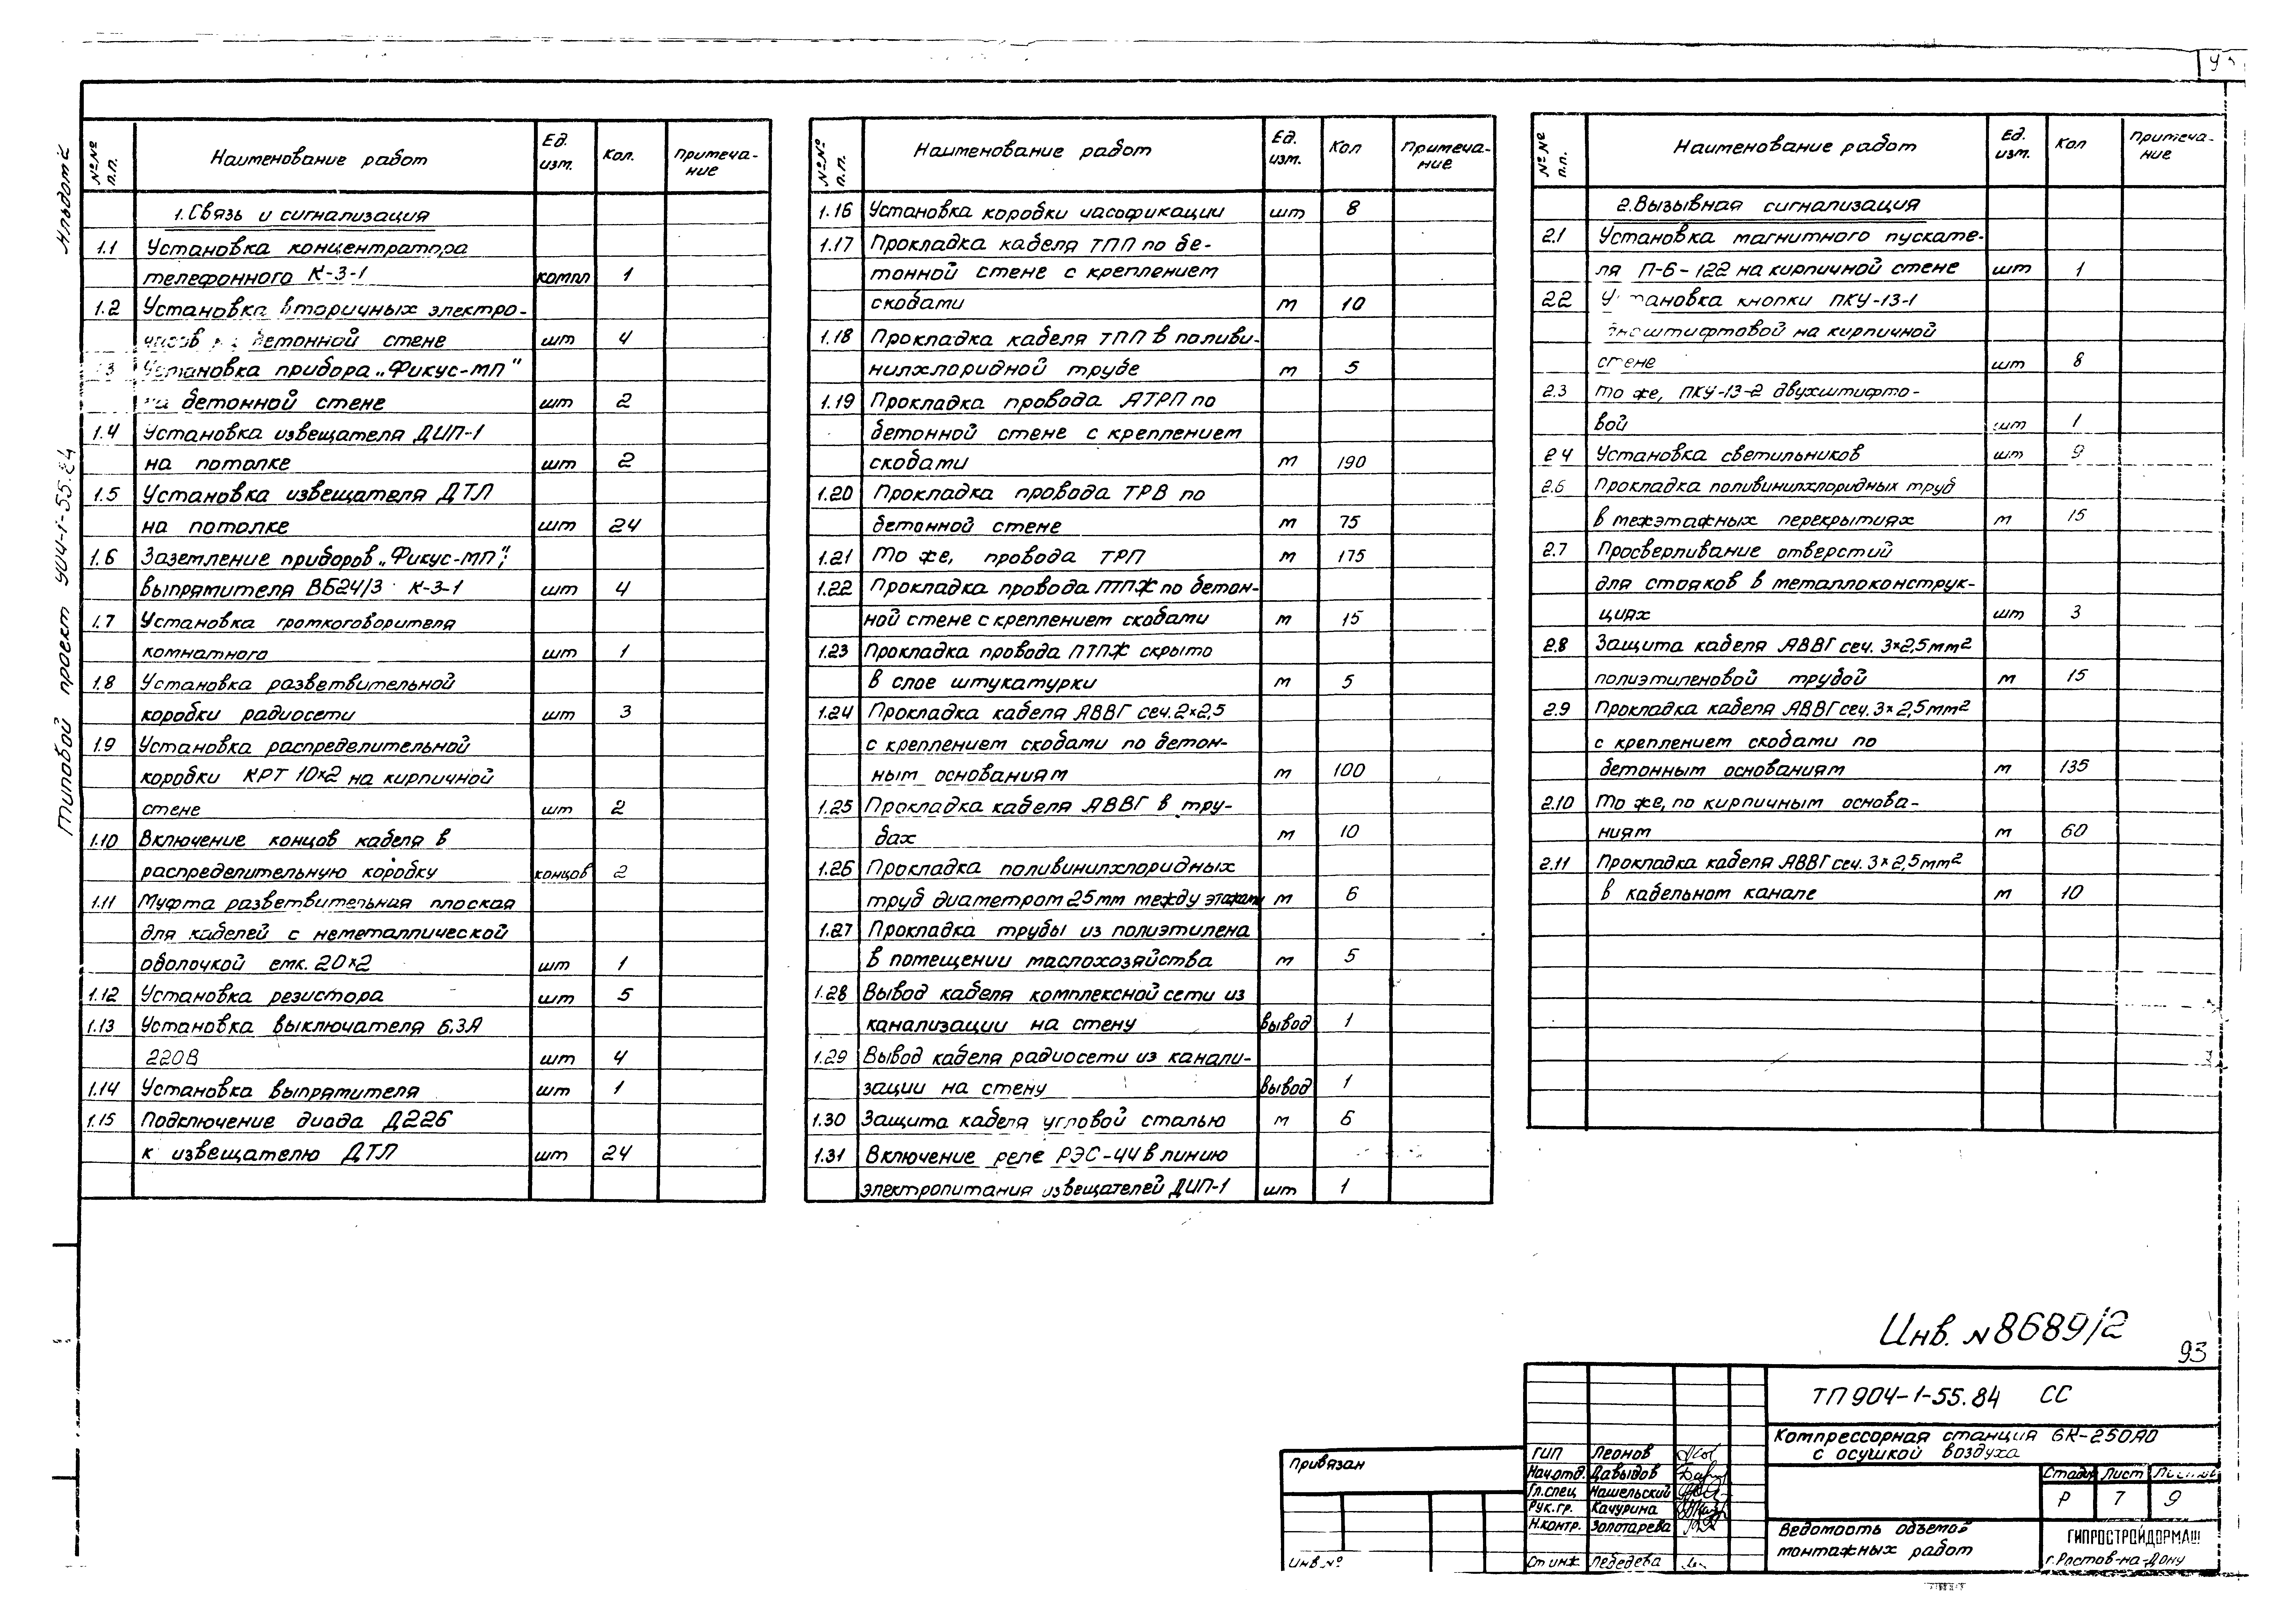 Альбом 2
Типовой проект 904-1-55.84
№№ п.п.
Наименование работ
Ед. изм.
Кол.
Примеча-
ние
1. Связь и сигнализация
1.1 Установка концентратора
телефонного К-3-1 компл 1
1.2 Установка вторичных электро-
часов на бетонной стене шт 4
3 Установка прибора „Фикус-МП"
на бетонной стене шт 2
1.4 Установка извещателя ДИП-1
на потолке шт 2
1.5 Установка извещателя ДТЛ
на потолке шт 24
1.6 Заземление приборов „Фикус-МП",
выпрямителя ВБ24/3 К-3-1 шт 4
1.7 Установка громкоговорителя
комнатного шт 1
1.8 Установка разветвительной
коробки радиосети шт 3
1.9 Установка распределительной
коробки КРТ 10×2 на кирпичной
стене шт 2
1.10 Включение концов кабеля в
распределительную коробку концов 2
1.11 Муфта разветвительная плоская
для кабелей с неметаллической
оболочкой емк. 20×2 шт 1
1.12 Установка резистора шт 5
1.13 Установка выключателя 6,3А
220В шт 4
1.14 Установка выпрямителя шт 1
1.15 Подключение диода Д226
к извещателю ДТЛ шт 24
№№ п.п.
Наименование работ
Ед. изм.
Кол
Примеча-
ние
1.16 Установка коробки часофикации шт 8
1.17 Прокладка кабеля ТПП по бе-
тонной стене с креплением
скобами м 10
1.18 Прокладка кабеля ТПП в поливи-
нилхлоридной трубе м 5
1.19 Прокладка провода АТРП по
бетонной стене с креплением
скобами м 190
1.20 Прокладка провода ТРВ по
бетонной стене м 75
1.21 То же, провода ТРП м 175
1.22 Прокладка провода ПТПЖ по бетон-
ной стене с креплением скобами м 15
1.23 Прокладка провода ПТПЖ скрыто
в слое штукатурки м 5
1.24 Прокладка кабеля АВВГ сеч. 2×2,5
с креплением скобами по бетон-
ным основаниям м 100
1.25 Прокладка кабеля АВВГ в тру-
бах м 10
1.26 Прокладка поливинилхлоридных
труб диаметром 25мм между этажами м 6
1.27 Прокладка трубы из полиэтилена
в помещении маслохозяйства м 5
1.28 Вывод кабеля комплексной сети из
канализации на стену вывод 1
1.29 Вывод кабеля радиосети из канали-
зации на стену вывод 1
1.30 Защита кабеля угловой сталью м 6
1.31 Включение реле РЭС-44 в линию
электропитания извещателей ДИП-1 шт 1
№№ п.п.
Наименование работ
Ед. изм.
Кол
Примеча-
ние
2. Вызывная сигнализация
2.1 Установка магнитного пускате-
ля П-6-122 на кирпичной стене шт 1
2.2 Установка кнопки ПКУ-13-1
одноштифтовой на кирпичной
стене шт 8
2.3 То же, ПКУ-13-2 двухштифто-
вой шт 1
2.4 Установка светильников шт 9
2.6 Прокладка поливинилхлоридных труб
в межэтажных перекрытиях м 15
2.7 Просверливание отверстий
для стояков в металлоконструк-
циях шт 3
2.8 Защита кабеля АВВГ сеч. 3×2,5мм²
полиэтиленовой трубой м 15
2.9 Прокладка кабеля АВВГ сеч. 3×2,5мм²
с креплением скобами по
бетонным основаниям м 135
2.10 То же, по кирпичным основа-
ниям м 60
2.11 Прокладка кабеля АВВГ сеч. 3×2,5мм²
в кабельном канале м 10
Инв. №8689/2
93
ТП 904-1-55.84 СС
Компрессорная станция 6К-250АО
с осушкой воздуха
Стадия Лист Листов
Р 7 9
Ведомость объемов
монтажных работ
ГИПРОСТРОЙДОРМАШ
г. Ростов-на-Дону
ГИП Леонов
Нач.отд. Давыдов
Гл.спец Нашельский
Рук.гр. Качурина
Н.контр. Золотарева
Ст инж Лебедева
Привязан
Инв №